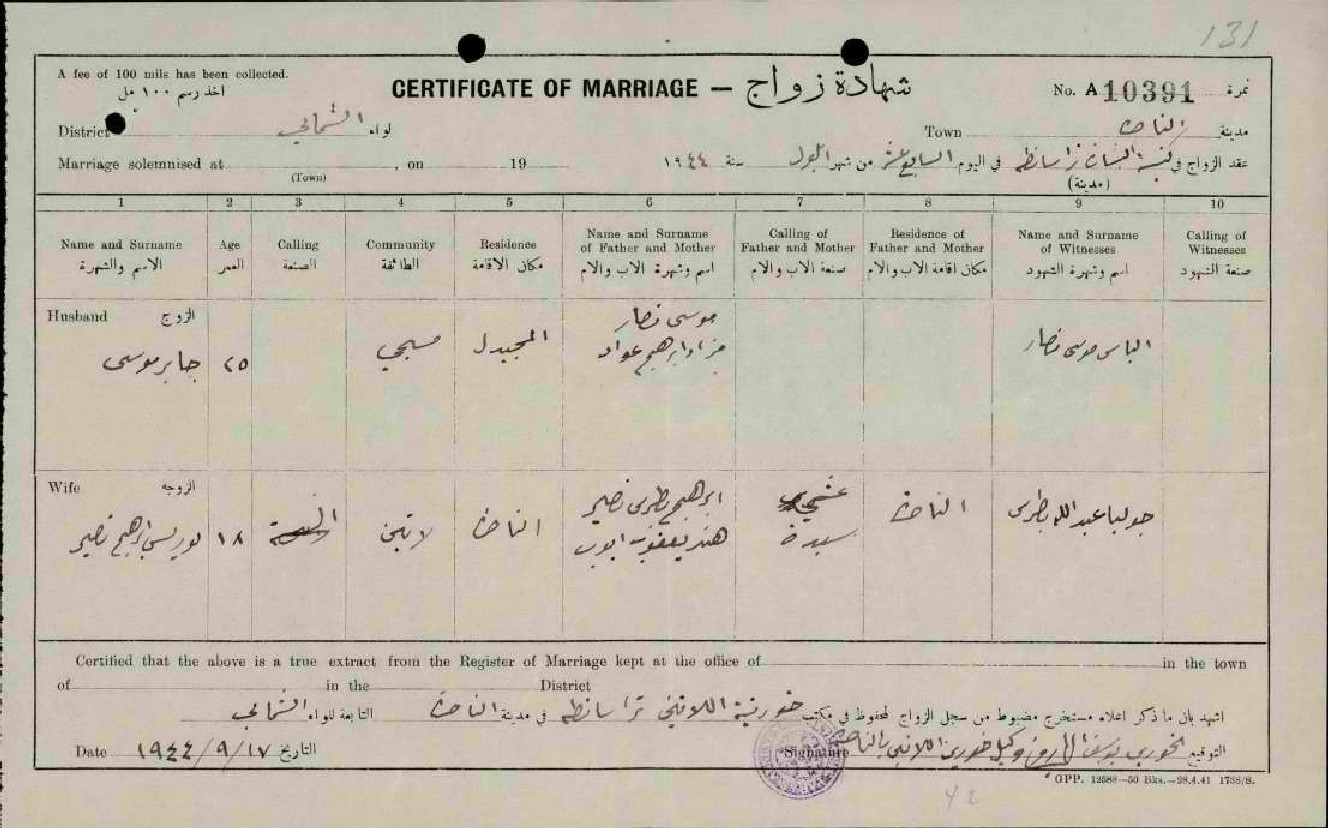 131
A fee of 100 mils has been collected.
اخذ رسم ١٠٠ مل
CERTIFICATE OF MARRIAGE — شهادة زواج
No. A 10391 نمرة
District الشمالي لواء
Town الناصرة مدينة
Marriage solemnised at , on 19
(Town)
عقد الزواج في تراسانطه في اليوم السابع عشر من شهر ايلول سنة ١٩٤٤
(مدينة)
1 2 3 4 5 6 7 8 9 10
Name and Surname الاسم والشهرة
Age العمر
Calling الصنعة
Community الطائفة
Residence مكان الاقامة
Name and Surname of Father and Mother اسم وشهرة الاب والام
Calling of Father and Mother صنعة الاب والام
Residence of Father and Mother مكان اقامة الاب والام
Name and Surname of Witnesses اسم وشهرة الشهود
Calling of Witnesses صنعة الشهود
Husband الزوج
جابر موسى
٢٥
مسيحي
المجيدل
موسى نصار
ابرهيم عواد
الياس موسى نصار
Wife الزوجه
ابرهيم نصير
١٨
لاتين
الناصرة
ابرهيم بطرس نصير
هند يعقوب ايوب
سيدة
الناصرة
جوليا عبدالله بطرس
Certified that the above is a true extract from the Register of Marriage kept at the office of in the town
of in the District
اشهد بان ما ذكر اعلاه مستخرج مضبوط من سجل الزواج المحفوظ في مكتب خورنية اللاتين تراسانطه في مدينة الناصرة التابعة للواء الشمالي
Date ١٩٤٤/٩/١٧ التاريخ
Signature الخوري يوسف وكيل خورنية اللاتين بالناصرة التوقيع
GPP. 12588—50 Bks.—28.4.41 1738/S.
42